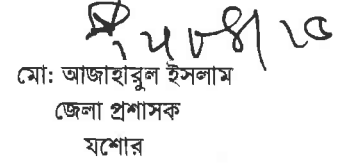 মো: আজাহারুল ইসলাম
জেলা প্রশাসক
যশোর